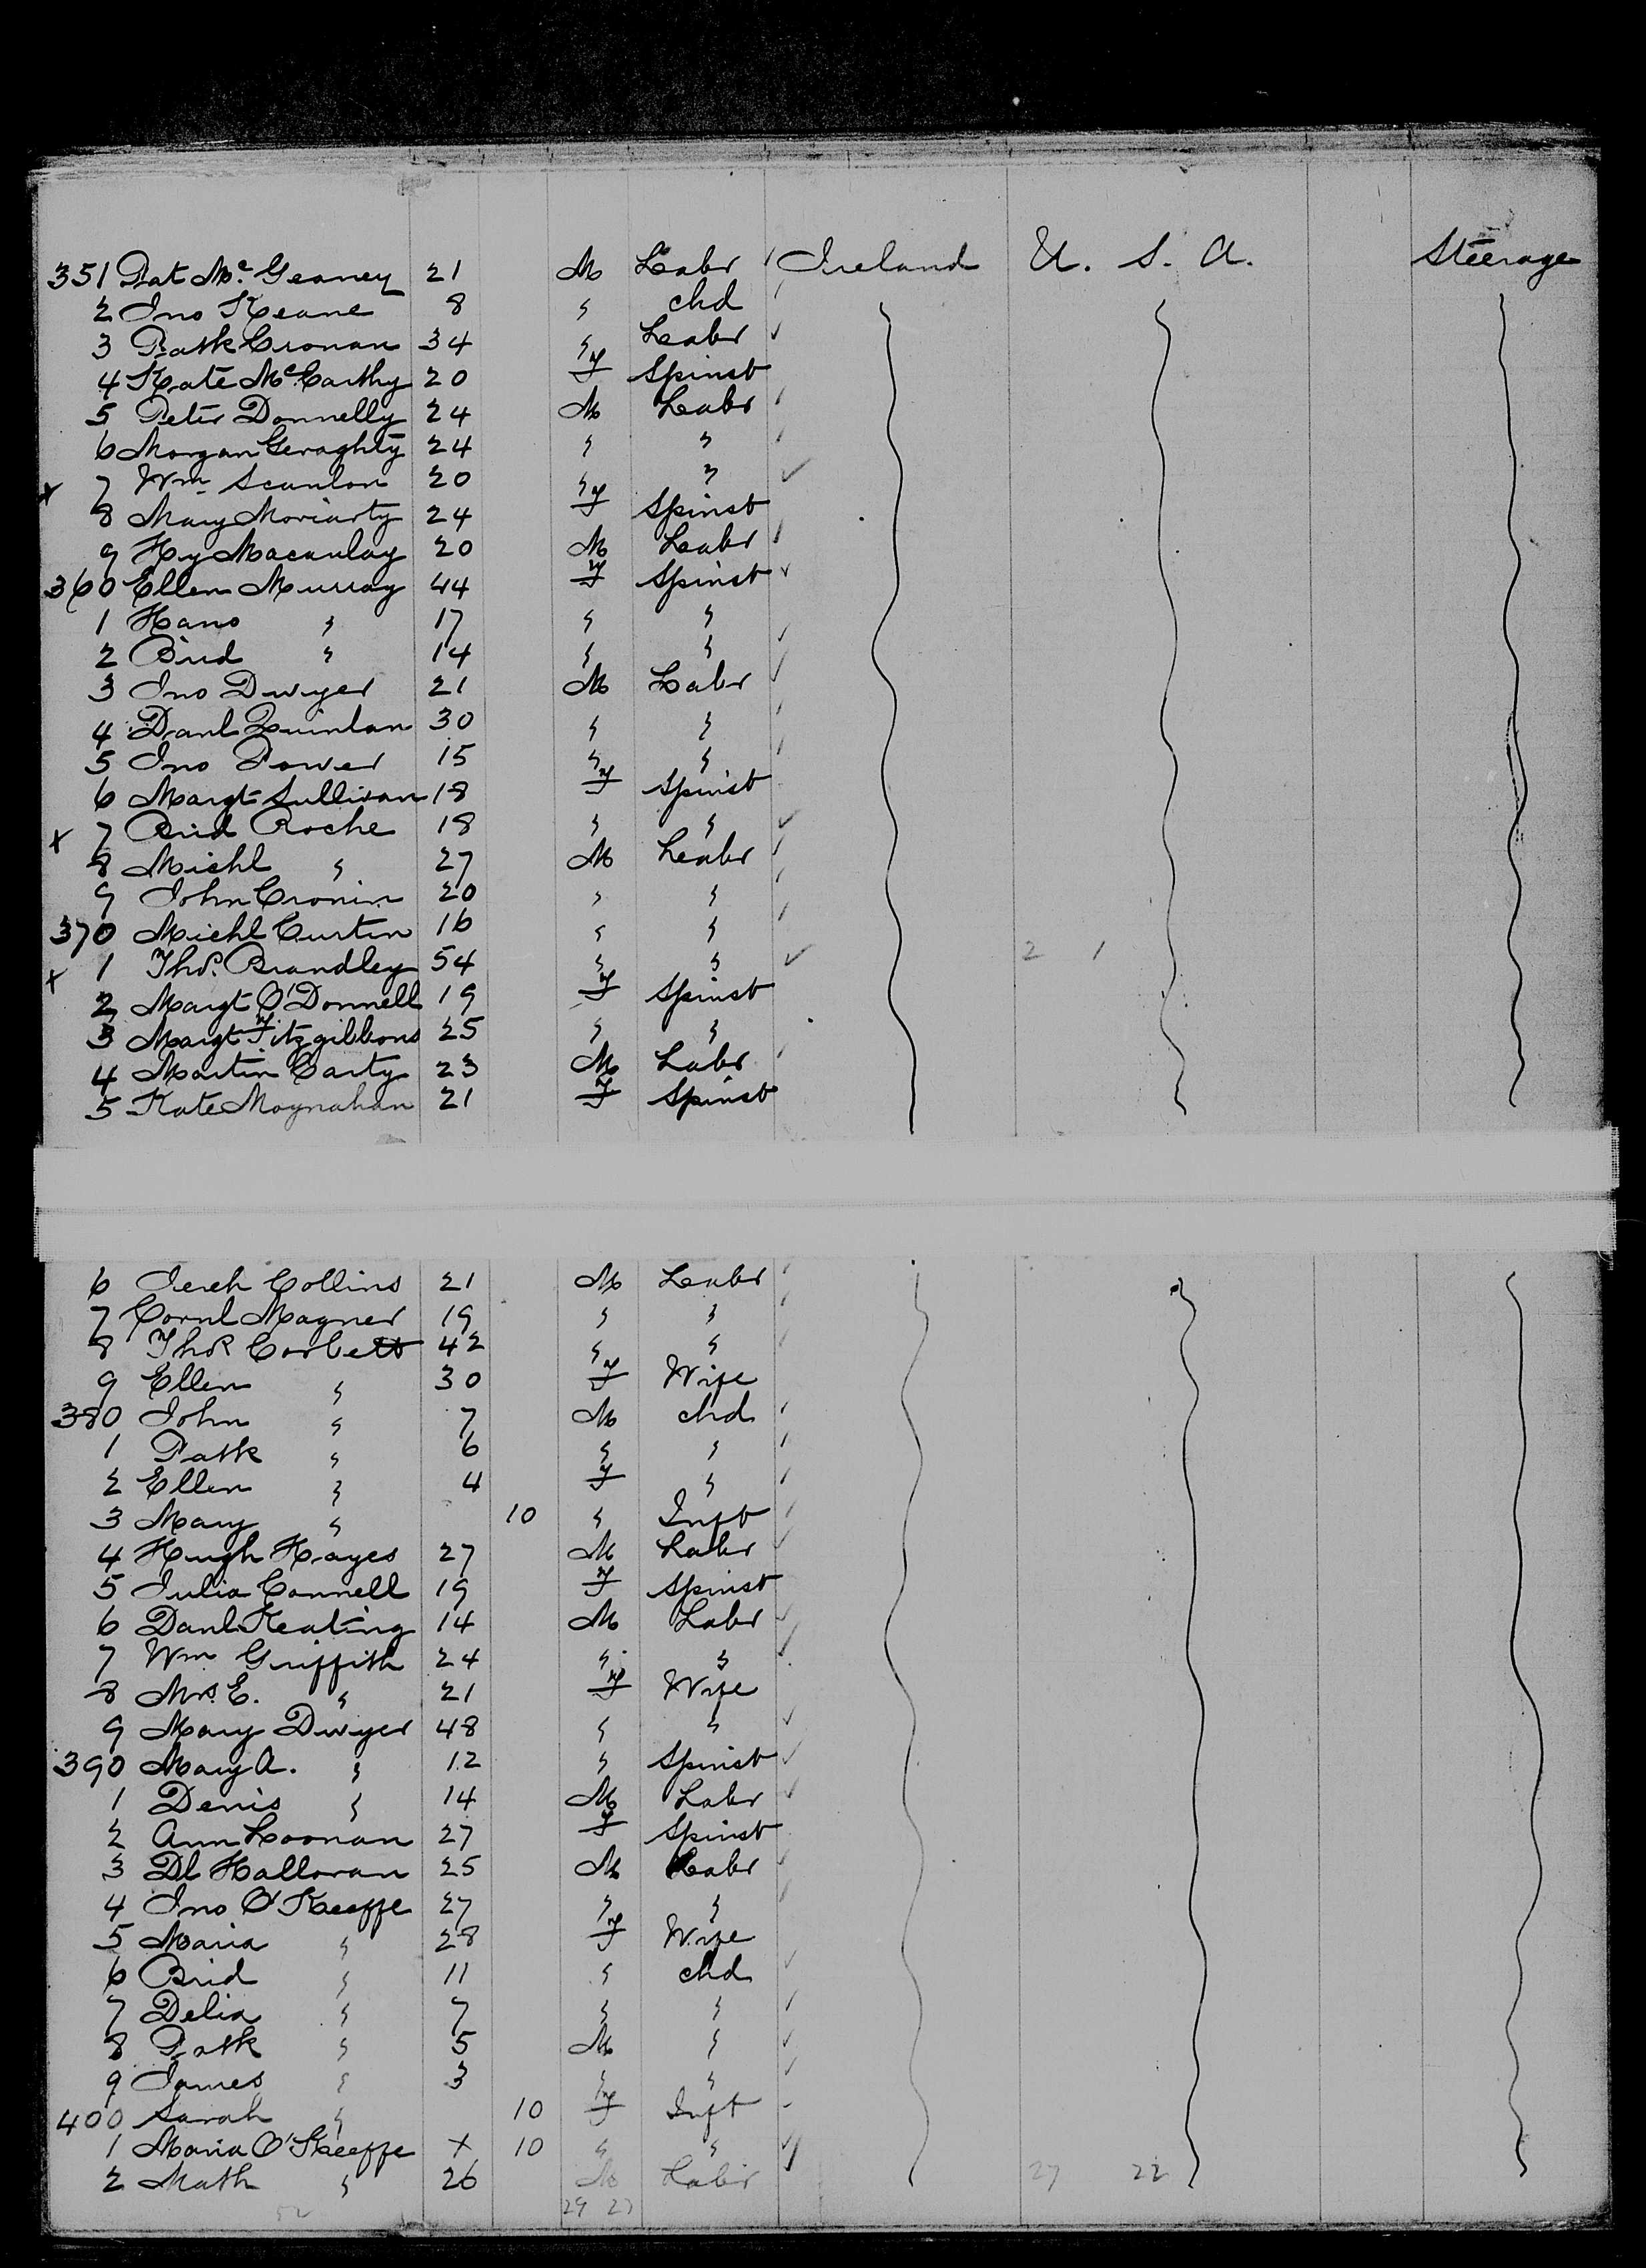 351 Pat Mc Geaney 21 M Labr Ireland U. S. A. Steerage
2 Jno Keane 8 " chd
3 Patk Cronan 34 " Labr
4 Kate McCarthy 20 F Spinst
5 Peter Donnelly 24 M Labr
6 Morgan Geraghty 24 " "
x 7 Wm Scanlon 20 " "
8 Mary Moriarty 24 F Spinst
9 Hy Macaulay 20 M Labr
360 Ellen Murray 44 F Spinst
1 Hano " 17 " "
2 Brid " 14 " "
3 Jno Dwyer 21 M Labr
4 Danl Quinlan 30 " "
5 Jno Power 15 " "
6 Margt Sullivan 18 F Spinst
x 7 Brid Roche 18 " "
8 Michl " 27 M Labr
9 John Cronin 20 " "
370 Michl Curtin 16 " "
x 1 Thos. Brandley 54 " " 2 1
2 Margt O'Donnell 19 F Spinst
3 Margt Fitzgibbons 25 " "
4 Martin Carty 23 M Labr
5 Kate Moynahan 21 F Spinst
6 Jereh Collins 21 M Labr
7 Cornl Magner 19 " "
8 Thos Corbett 42 " "
9 Ellen " 30 F Wife
380 John " 7 M chd
1 Patk " 6 " "
2 Ellen " 4 F "
3 Mary " 10 " Inft
4 Hugh Hayes 27 M Labr
5 Julia Connell 19 F Spinst
6 Danl Keating 14 M Labr
7 Wm Griffith 24 " "
8 Mrs. E. " 21 F Wife
9 Mary Dwyer 48 " "
390 Mary A. " 12 " Spinst
1 Denis " 14 M Labr
2 Ann Loonan 27 F Spinst
3 Dl Halloran 25 M Labr
4 Jno O'Keeffe 27 " "
5 Maria " 28 F Wife
6 Brid " 11 " chd
7 Delia " 7 " "
8 Patk " 5 M "
9 James " 3 " "
400 Sarah " 10 F Inft
1 Maria O'Keeffe x 10 " "
2 Math " 26 M Labr 27 22
52 29 23